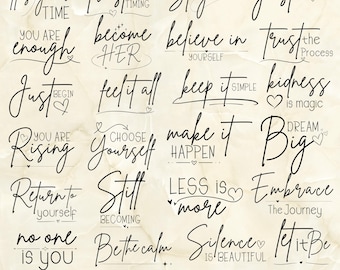 It's
TIME
trust
TIMING
YOU ARE
enough
become
HER
believe in
YOURSELF
trust the
Process
Just BEGIN
feel it all
keep it SIMPLE
kindness
is magic
YOU ARE
Rising
CHOOSE
Yourself
make it
HAPPEN
DREAM
Big
Return to
yourself
Still
BECOMING
LESS IS
more
Embrace
The Journey
no one
IS YOU
Be the calm
Silence
IS BEAUTIFUL
let it Be